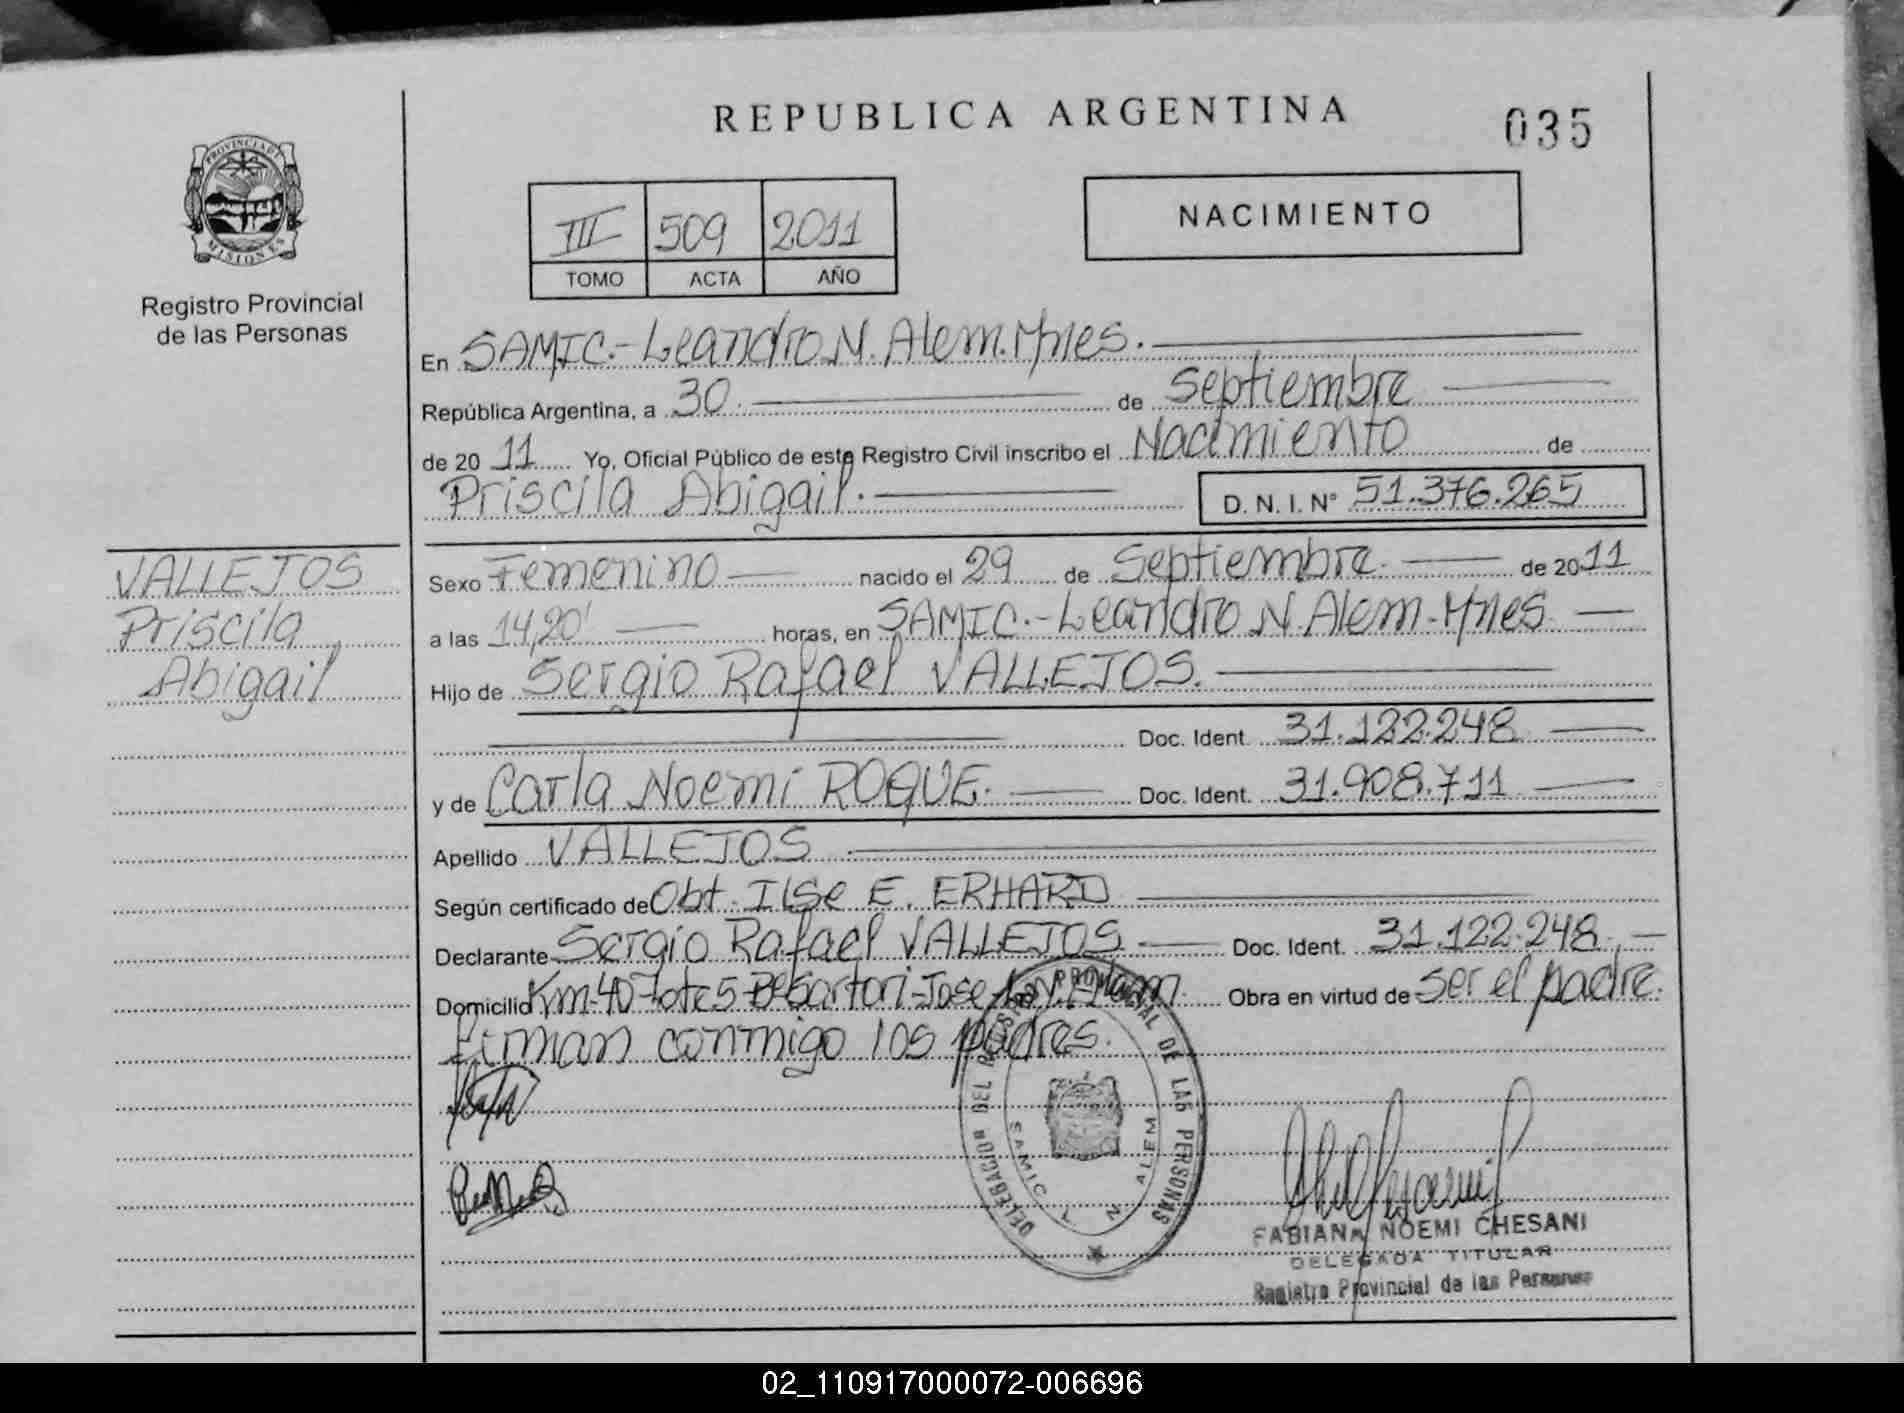 REPUBLICA ARGENTINA
035
PROVINCIA DE
MISIONES
Registro Provincial
de las Personas
III 509 2011
TOMO ACTA AÑO
NACIMIENTO
En SAMIC.- Leandro N. Alem. Mnes.
República Argentina, a 30. de Septiembre
de 20 11 Yo, Oficial Público de este Registro Civil inscribo el Nacimiento de
Priscila Abigail. D. N. I. Nº 51.376.265
VALLEJOS
Priscila
Abigail
Sexo Femenino nacido el 29 de Septiembre. de 20 11
a las 14,20' horas, en SAMIC.- Leandro N. Alem - Mnes
Hijo de Sergio Rafael VALLEJOS.
Doc. Ident. 31.122.248
y de Carla Noemi ROQUE. Doc. Ident. 31.908.711
Apellido VALLEJOS
Según certificado de Obt. Ilse E. ERHARD
Declarante Sergio Rafael VALLEJOS Doc. Ident. 31.122.248
Domicilio Km-40-Lote 5 Obra en virtud de ser el padre.
Firman conmigo los padres.
DELEGACION DEL REGISTRO PROVINCIAL DE LAS PERSONAS
SAMIC L N ALEM
FABIANA NOEMI CHESANI
DELEGADA TITULAR
Registro Provincial de las Personas
02_110917000072-006696